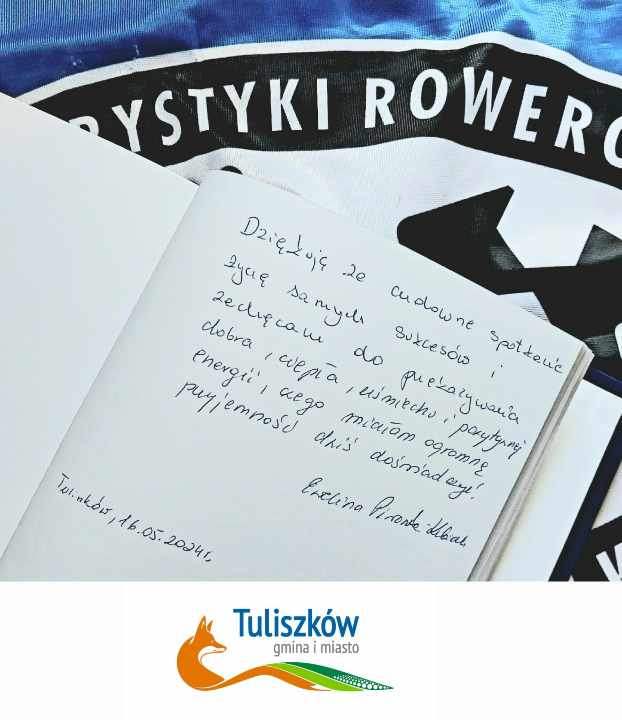 RYSTYKI ROWERO
Dziękuję za cudowne spotkanie
życzę samych sukcesów i
zachęcam do przekazywania
dobra, ciepła, uśmiechu i pozytywnej
energii, czego miałam ogromną
przyjemność dziś doświadczyć!
Ewelina
Tuliszków, 16.05.2024r.
Tuliszków
gmina i miasto